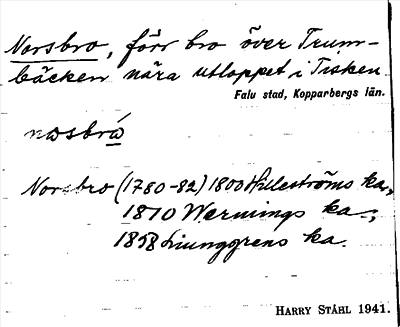 Norsbro, förr bro över Trum-
bäcken nära utloppet i Tisken.
Falu stad, Kopparbergs län.
nosbrò
Norsbro (1780-82) 1800 Hilleströms ka.,
1810 Wernings ka.,
1858 Ljunggrens ka.
HARRY STÅHL 1941.